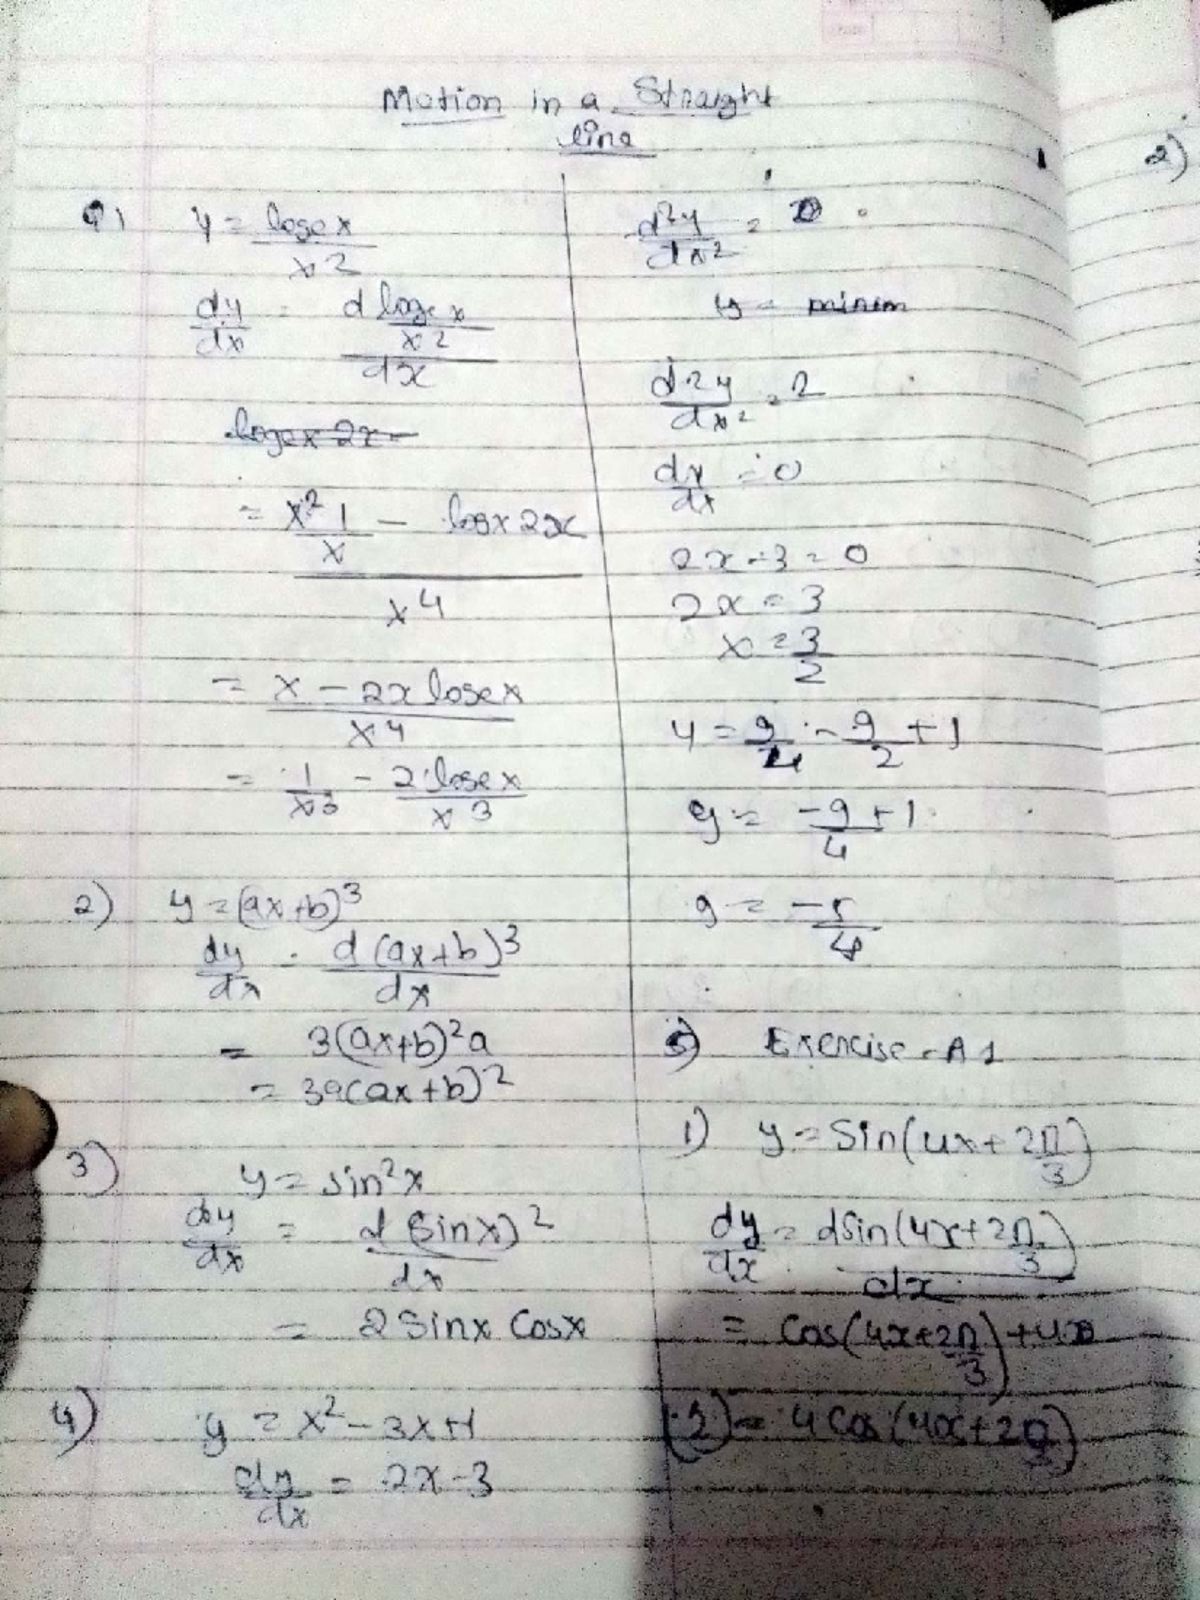 Motion in a Straight
line
Q1 y = logex
x2
dy = d logex
dx x2
dx
logex 2x
= x² 1 - logx 2x
x
x4
= x - 2x logex
x4
= 1 - 2 logex
x3 x3
2) y = (ax+b)3
dy = d (ax+b)3
dx dx
= 3(ax+b)²a
= 3a(ax+b)2
3) y = sin²x
dy = d (sinx)2
dx dx
= 2 Sinx Cosx
4) y = x² - 3x+1
dy = 2x-3
dx
d²y =
dx2
y = minim
d2y = 2
dx2
dy = 0
dx
2x-3 = 0
2x = 3
x = 3
2
y = 9 - 9 + 1
4 2
y = -9 + 1
4
y = -5
4
5) Exercise - A1
1) y = Sin(4x+2π
3)
dy = dsin(4x+2π
dx 3)
dx
= Cos(4x+2π) +4
3
= 4 Cos (4x+2π
3)
2)